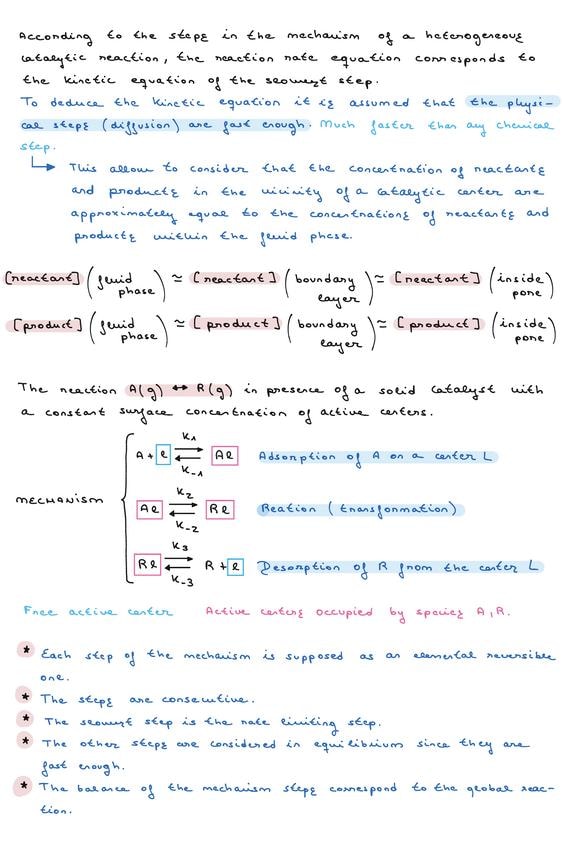 According to the steps in the mechanism of a heterogeneous
catalytic reaction, the reaction rate equation corresponds to
the kinetic equation of the slowest step.
To deduce the kinetic equation it is assumed that the physi-
cal steps (diffusion) are fast enough. Much faster than any chemical
step.
This allow to consider that the concentration of reactants
and products in the vicinity of a catalytic center are
approximately equal to the concentrations of reactants and
products within the fluid phase.
[reactant] (fluid phase) ≃ [reactant] (boundary layer) ≃ [reactant] (inside pore)
[product] (fluid phase) ≃ [product] (boundary layer) ≃ [product] (inside pore)
The reaction A(g) ↔ R(g) in presence of a solid catalyst with
a constant surface concentration of active centers.
MECHANISM
A + l ⇄ Al K1 K-1 Adsorption of A on a center L
Al ⇄ Rl K2 K-2 Reation (transformation)
Rl ⇄ R + l K3 K-3 Desorption of R from the center L
Free active center Active centers occupied by species A, R.
* Each step of the mechanism is supposed as an elemental reversible
one.
* The steps are consecutive.
* The slowest step is the rate limiting step.
* The other steps are considered in equilibrium since they are
fast enough.
* The balance of the mechanism steps correspond to the global reac-
tion.